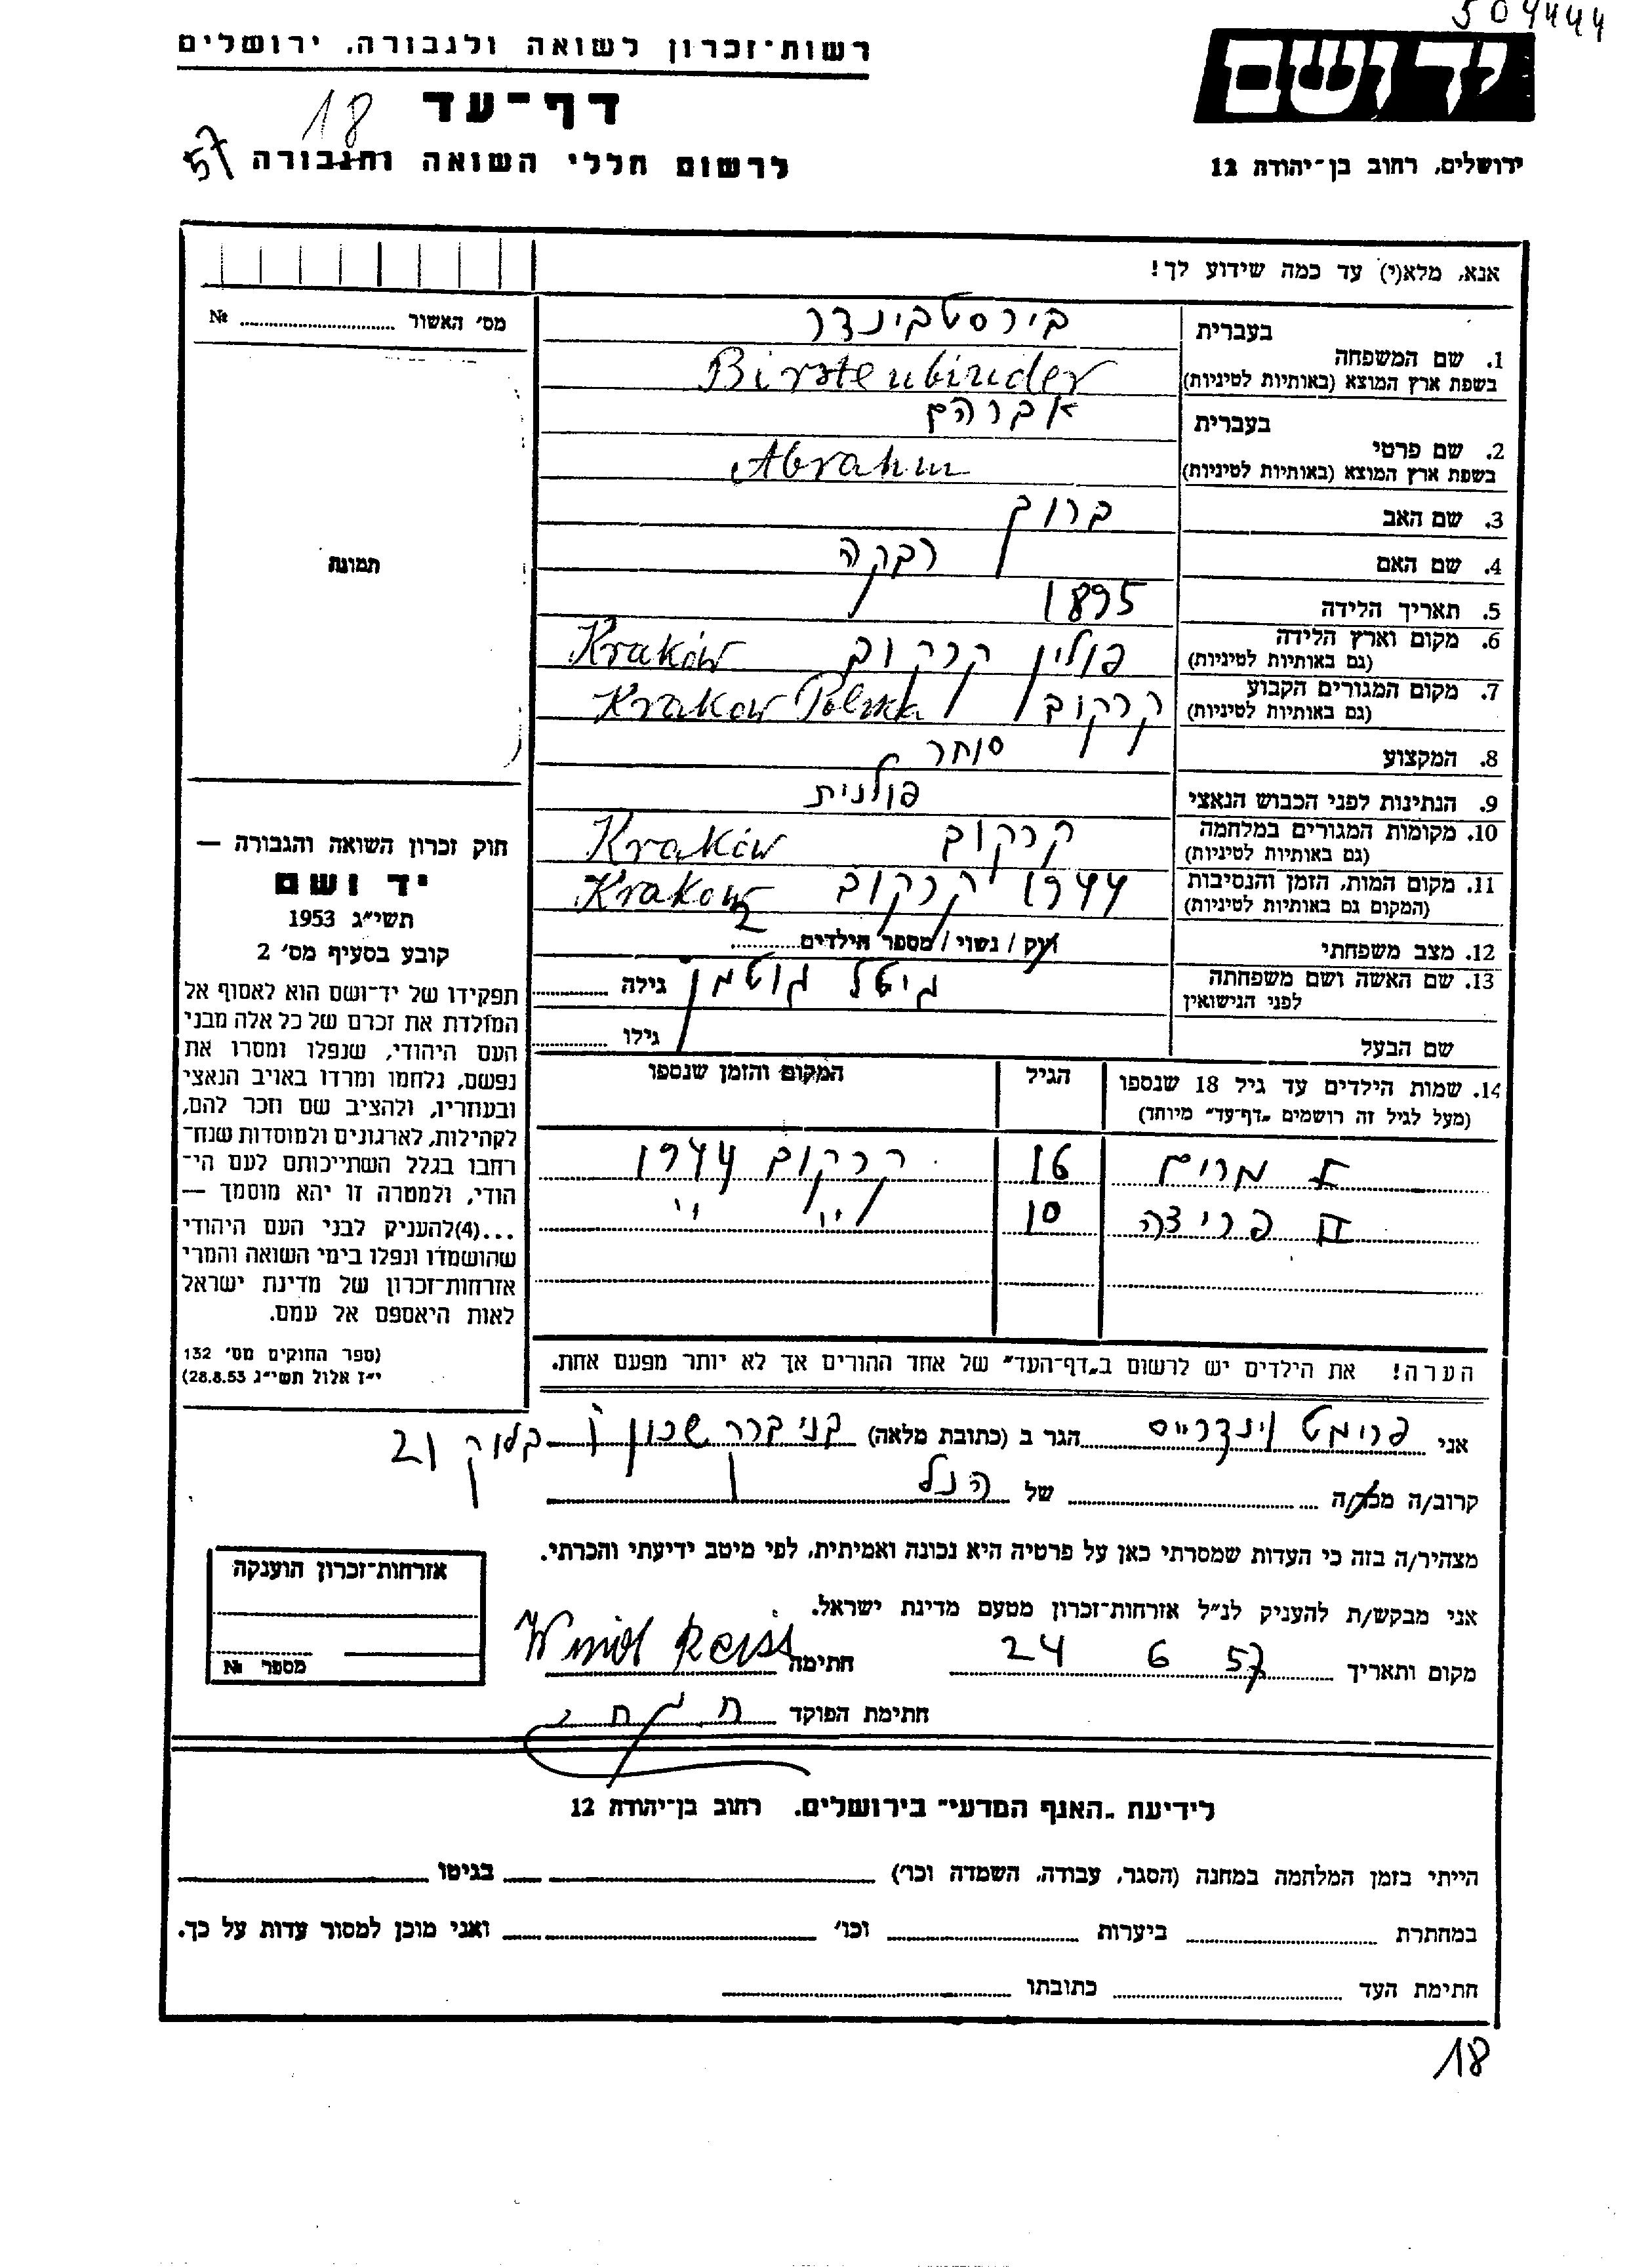 504444
יד ושם
ירושלים, רחוב בן־יהודה 12
רשות־זכרון לשואה ולגבורה, ירושלים
דף־עד
18
לרשום חללי השואה והגבורה
57
אנא, מלא(י) עד כמה שידוע לך!
מס' האשור ........ №
תמונה
1. שם המשפחה
בעברית
בירסטבינדר
בשפת ארץ המוצא (באותיות לטיניות)
Birstenbinder
2. שם פרטי
בעברית
אברהם
בשפת ארץ המוצא (באותיות לטיניות)
Abraham
3. שם האב ברוך
4. שם האם רבקה
5. תאריך הלידה 1895
6. מקום וארץ הלידה פולין קרקוב Kraków
(גם באותיות לטיניות)
7. מקום המגורים הקבוע קרקוב Krakow Polska
(גם באותיות לטיניות)
8. המקצוע סוחר
9. הנתינות לפני הכבוש הנאצי פולנית
10. מקומות המגורים במלחמה קרקוב Kraków
(גם באותיות לטיניות)
11. מקום המות, הזמן והנסיבות 1944 קרקוב Krakow
(המקום גם באותיות לטיניות)
12. מצב משפחתי רוק / נשוי / מספר הילדים 2
13. שם האשה ושם משפחתה גיטל גוטמן גילה
לפני הנישואין
שם הבעל גילו
14. שמות הילדים עד גיל 18 שנספו הגיל המקום והזמן שנספו
(מעל לגיל זה רושמים „דף־עד" מיוחד)
I מרים 16 קרקוב 1944
II פריצה 10 " "
הערה! את הילדים יש לרשום ב„דף־העד" של אחד ההורים אך לא יותר מפעם אחת.
חוק זכרון השואה והגבורה —
יד ושם
תשי"ג 1953
קובע בסעיף מס' 2
תפקידו של יד־ושם הוא לאסוף אל
המולדת את זכרם של כל אלה מבני
העם היהודי, שנפלו ומסרו את
נפשם, נלחמו ומרדו באויב הנאצי
ובעוזריו, ולהציב שם וזכר להם,
לקהילות, לארגונים ולמוסדות שנח־
רחבו בגלל השתייכותם לעם הי־
הודי, ולמטרה זו יהא מוסמך —
...(4)להעניק לבני העם היהודי
שהושמדו ונפלו בימי השואה והמרי
אזרחות־זכרון של מדינת ישראל
לאות היאספם אל עמם.
(ספר החוקים מס' 132
י"ז אלול תשי"ג 28.8.53)
אני פרומט וינדרייס הגר ב (כתובת מלאה) בני ברק שכון ו בלוק 21
קרוב/ה מכר/ה של הנל
מצהיר/ה בזה כי העדות שמסרתי כאן על פרטיה היא נכונה ואמיתית, לפי מיטב ידיעתי והכרתי.
אני מבקש/ת להעניק לנ"ל אזרחות־זכרון מטעם מדינת ישראל.
מקום ותאריך 24 6 57 חתימה
חתימת הפוקד
אזרחות־זכרון הוענקה
מספר №
לידיעת „האגף המדעי" בירושלים, רחוב בן־יהודה 12
הייתי בזמן המלחמה במחנה (הסגר, עבודה, השמדה וכו') בגיטו
במחתרת ביערות וכו' ואני מוכן למסור עדות על כך.
חתימת העד כתובתו
18